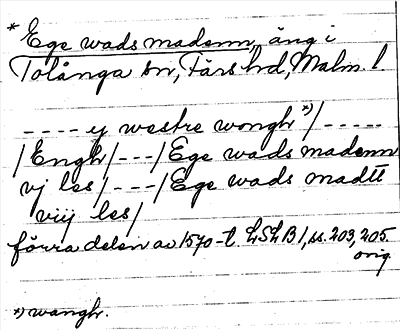 * Ege wads madenn, äng i
Tolånga sn, Färs hd, Malm. l
---- ej westre wongh *) / -----
/ Engh / --- / Ege wads madenn
vj les / --- / Ege wads madtt
viij les /
förra delen av 1570-t. LSLB 1, ss. 203, 205.
orig
*) wangh.